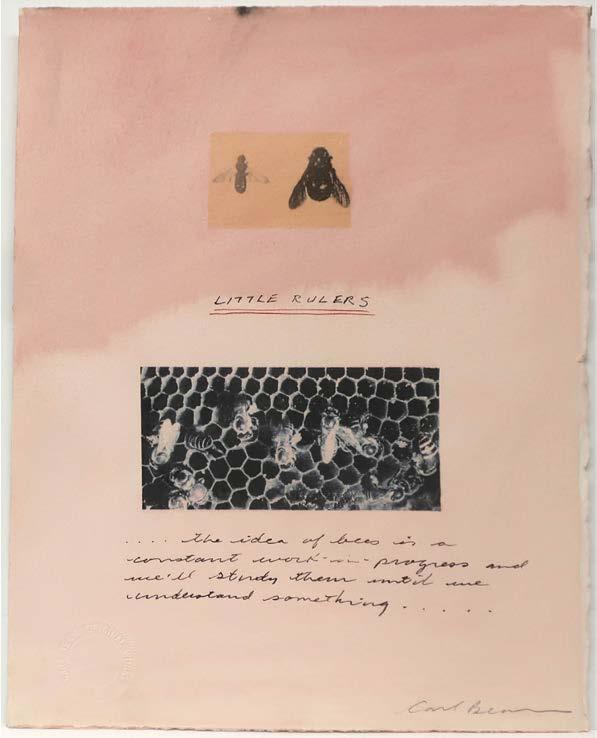 LITTLE RULERS
.... the idea of bees is a
constant work-in-progress and
we'll study them until we
understand something.....
Carl Beam